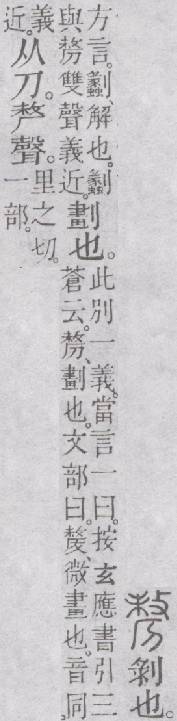 剺剝也。
方言。劙、解也。劙
與剺雙聲義近。
劃也。
此別一義。當言一曰。按玄應書引三
蒼云。剺、劃也。文部曰。𣁛、微畫也。音同
義
近。
从刀。𠩺聲。
里之切。
一部。